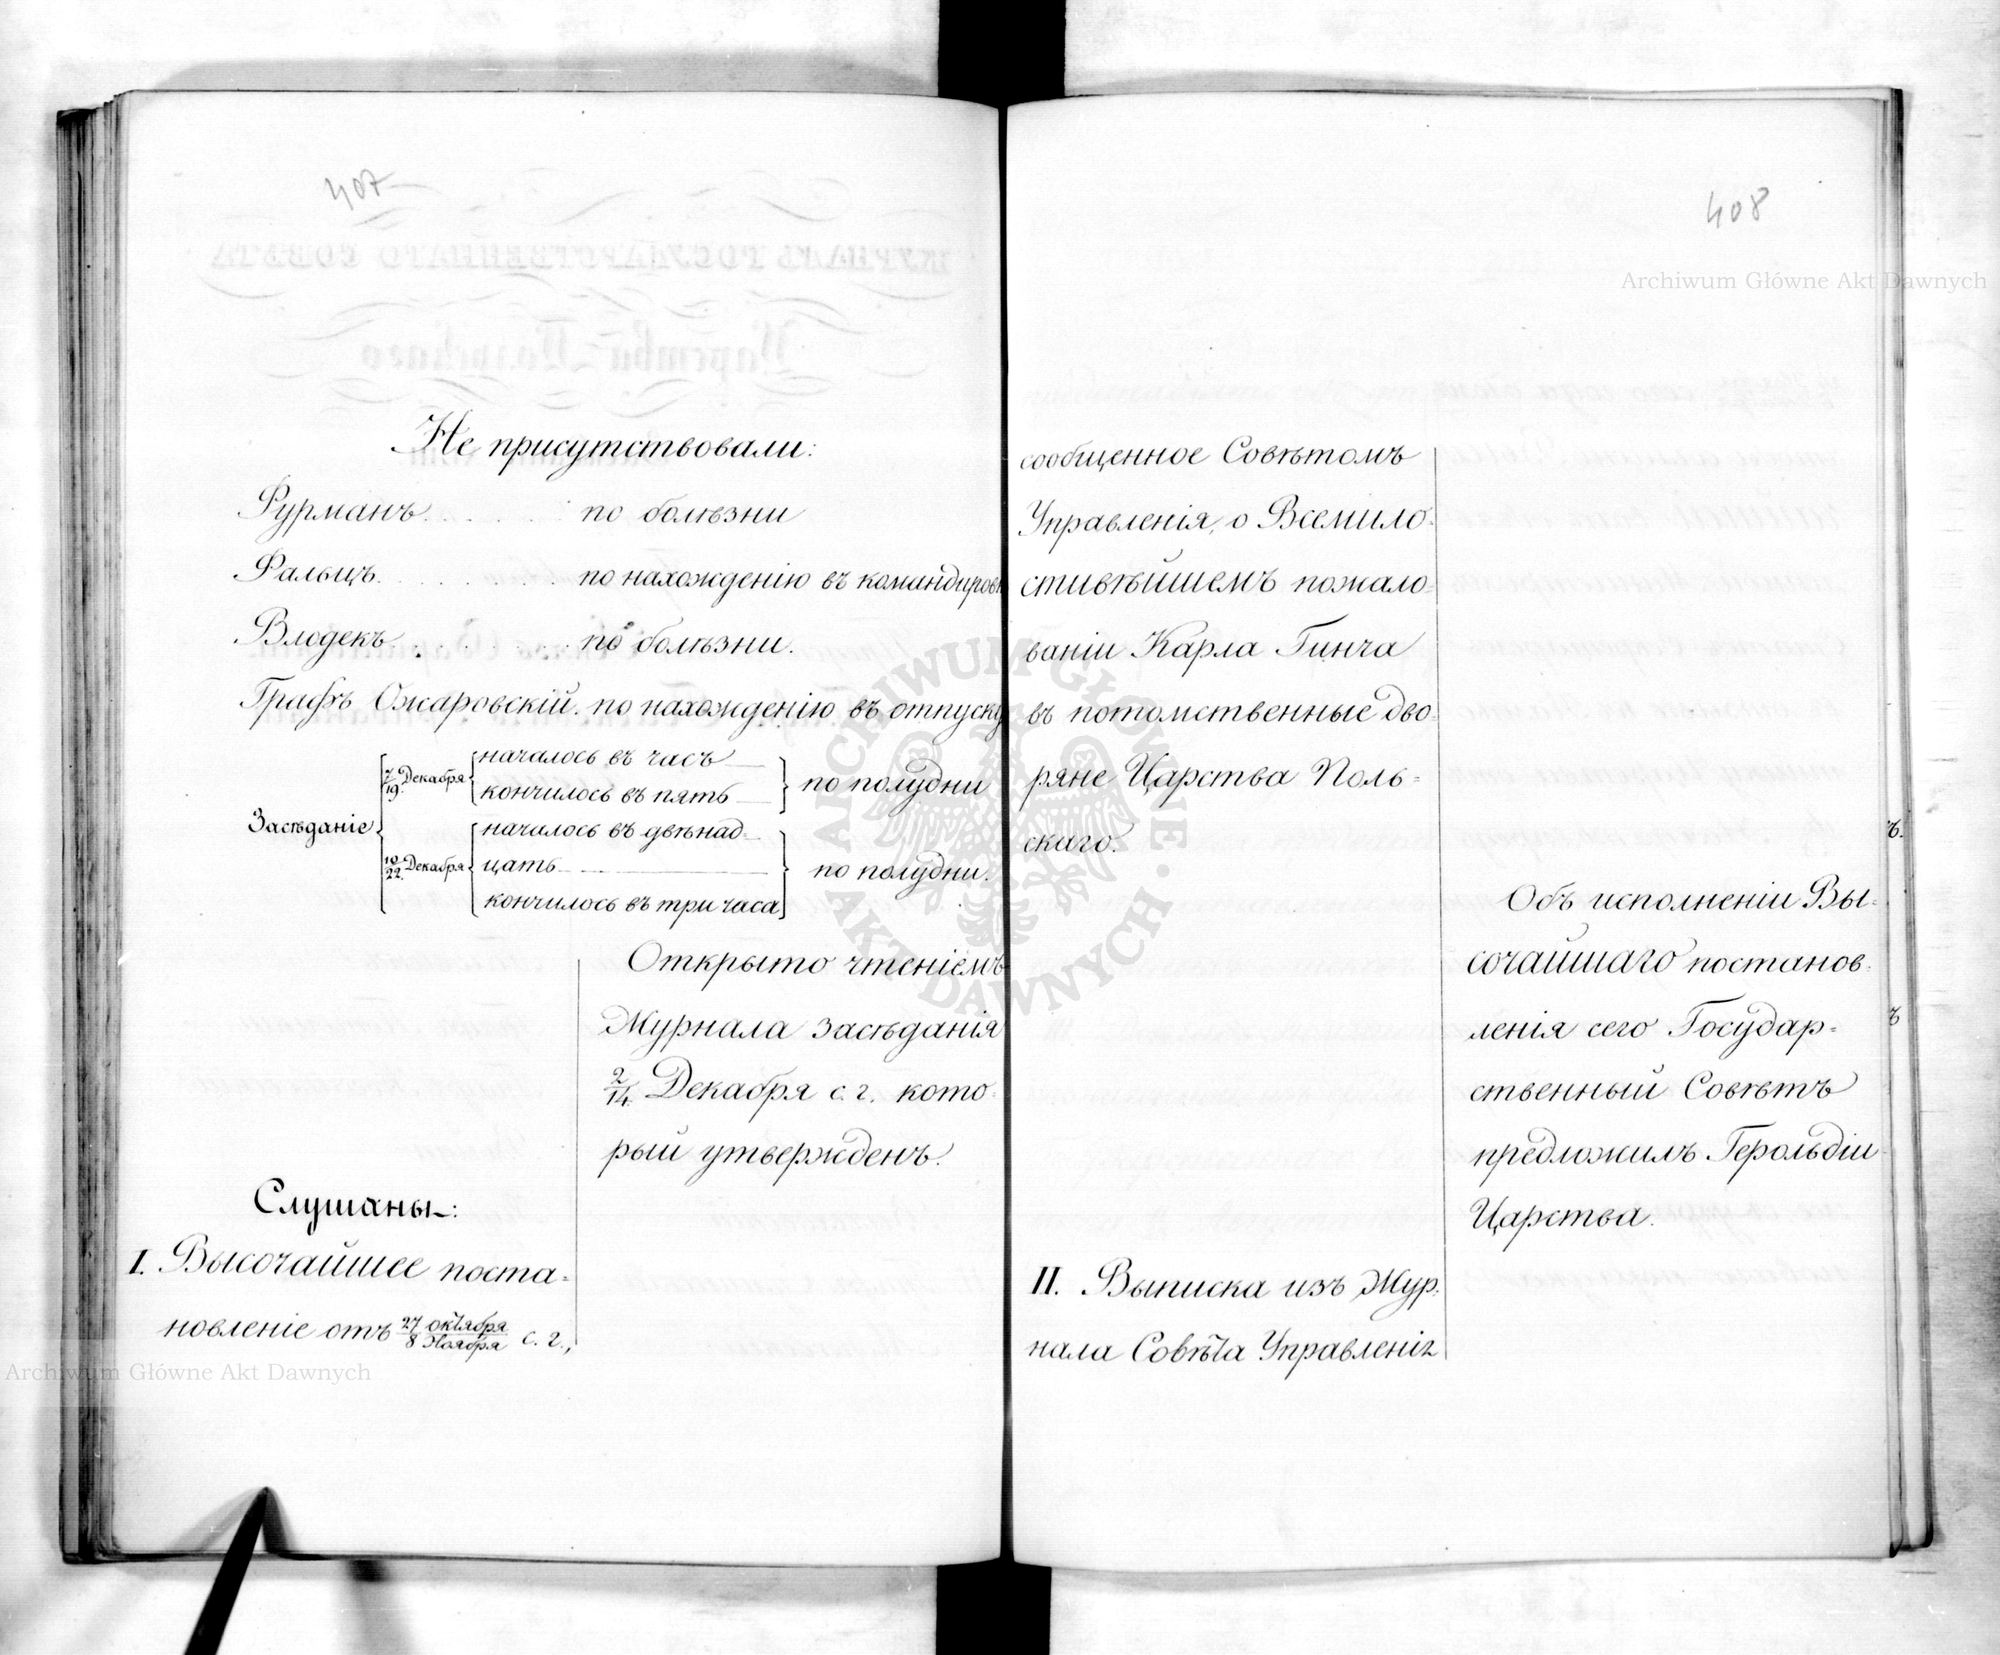 407
Не присутствовали:
Фурманъ . . . . . по болѣзни
Фальцъ . . . . . по нахожденію въ командиров
Влодекъ . . . . . по болѣзни.
Графъ Ожаровскій. по нахожденію въ отпуску
Засѣданіе
7/19. Декабря
началось въ часъ
кончилось въ пять
по полудни
10/22. Декабря
началось въ двѣнад-
цать
кончилось въ три часа
по полудни.
Открыто чтеніемъ
Журнала засѣданія
2/14. Декабря с. г. кото-
рый утвержденъ.
Слушаны:
I. Высочайшее поста-
новленіе отъ 27 октября/8 Ноября с. г.,
408
сообщенное Совѣтомъ
Управленія, о Всемило-
стивѣйшемъ пожало-
ваніи Карла Гинча
въ потомственные дво-
ряне Царства Поль-
скаго.
Объ исполненіи Вы-
сочайшаго постанов-
ленія сего Государ-
ственный Совѣтъ
предложилъ Герольдіи
Царства.
II. Выписка изъ Жур-
нала Совѣта Управленія
ъ.
ъ
Archiwum Główne Akt Dawnych
ARCHIWUM GŁÓWNE AKT DAWNYCH
Archiwum Główne Akt Dawnych